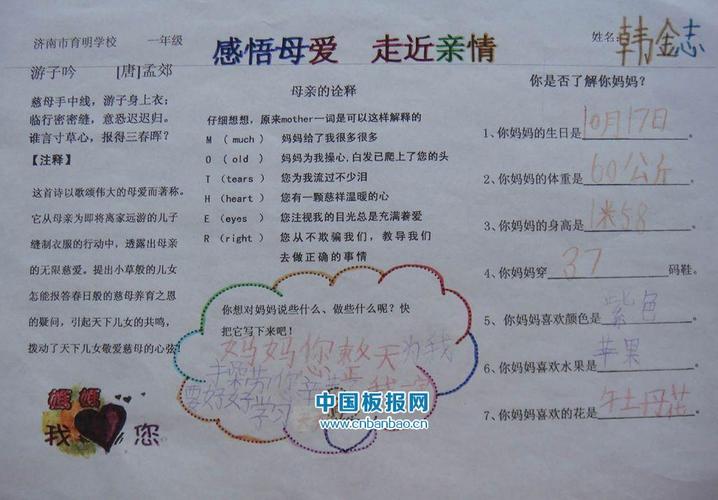 济南市育明学校 一年级
感悟母爱 走近亲情
姓名:韩金志
游子吟 [唐]孟郊
慈母手中线，游子身上衣；
临行密密缝，意恐迟迟归。
谁言寸草心，报得三春晖？
【注释】
这首诗以歌颂伟大的母爱而著称。
它从母亲为即将离家远游的儿子
缝制衣服的行动中，透露出母亲
的无限慈爱。提出小草般的儿女
怎能报答春日般的慈母养育之恩
的疑问，引起天下儿女的共鸣，
拨动了天下儿女敬爱慈母的心弦！
妈妈
我 您
母亲的诠释
仔细想想，原来mother一词是可以这样解释的
M （ much ） 妈妈给了我很多很多
O （ old ） 妈妈为我操心,白发已爬上了您的头
T （tears ） 您为我流过不少泪
H （heart ） 您有一颗慈祥温暖的心
E （eyes ） 您注视我的目光总是充满着爱
R （right ） 您从不欺骗我们，教导我们
去做正确的事情
你想对妈妈说些什么、做些什么呢？快
把它写下来吧！
妈妈你整天为我
要好好学习
你是否了解你妈妈？
1、你妈妈的生日是10月17日。
2、你妈妈的体重是60公斤。
3、你妈妈的身高是1米58。
4、你妈妈穿37码鞋。
5、你妈妈喜欢颜色是紫色。
6、你妈妈喜欢水果是苹果。
7、你妈妈喜欢的花是牡丹花。
中国板报网
www.cnbanbao.cn